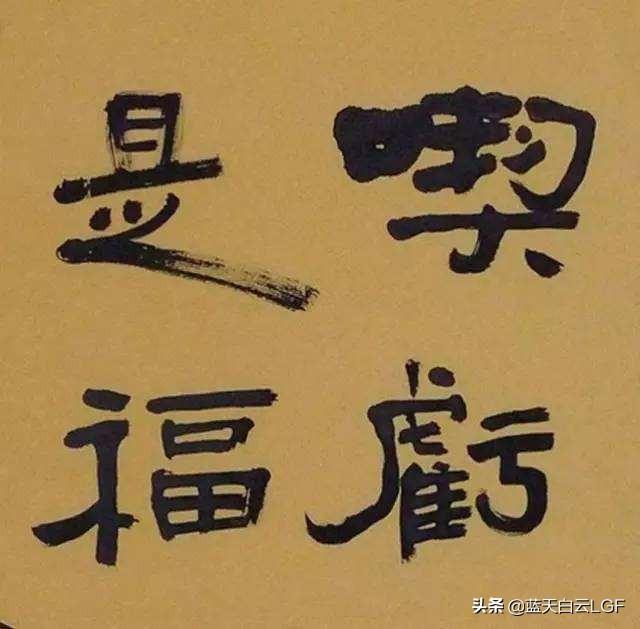 喫虧
是福
头条 @蓝天白云LGF